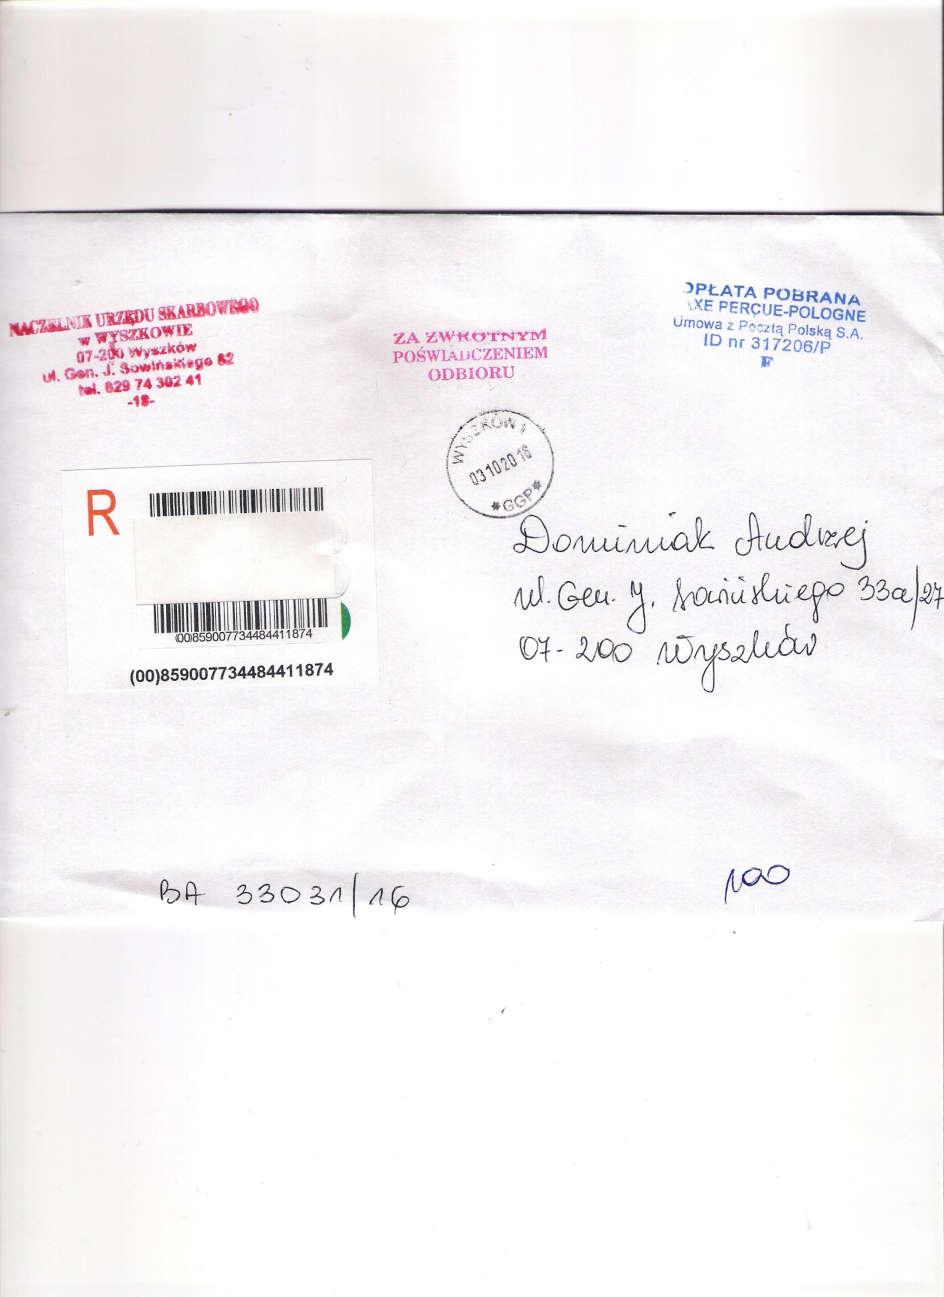 NACZELNIK URZĘDU SKARBOWEGO
w WYSZKOWIE
07-200 Wyszków
ul. Gen. J. Sowińskiego 82
tel. 829 74 302 41
-18-
ZA ZWROTNYM
POŚWIADCZENIEM
ODBIORU
OPŁATA POBRANA
AXE PERÇUE-POLOGNE
Umowa z Pocztą Polską S.A.
ID nr 317206/P
F
WYSZKÓW 1
03102016
*GGP*
R
(00)859007734484411874
(00)859007734484411874
Dominiak Andrzej
ul. Gen. J. Sowińskiego 33a/27
07-200 Wyszków
BA 33031/16
100